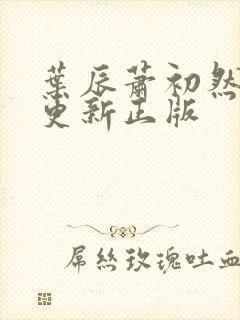 葉辰蕭初然
更新正版
屌絲玫瑰吐血